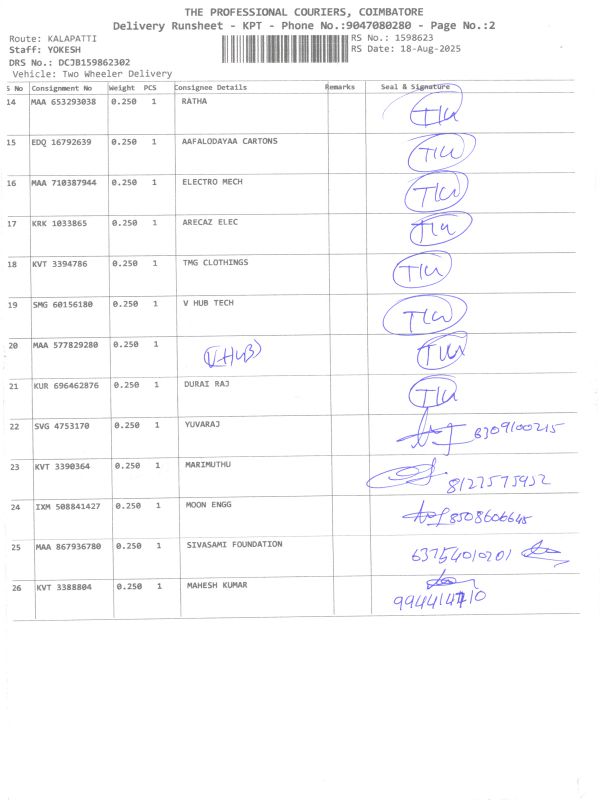 THE PROFESSIONAL COURIERS, COIMBATORE
Delivery Runsheet - KPT - Phone No.:9047080280 - Page No.:2
Route: KALAPATTI
RS No.: 1598623
Staff: YOKESH
RS Date: 18-Aug-2025
DRS No.: DCJB159862302
Vehicle: Two Wheeler Delivery
S No Consignment No Weight PCS Consignee Details Remarks Seal & Signature
14 MAA 653293038 0.250 1 RATHA
15 EDQ 16792639 0.250 1 AAFALODAYAA CARTONS
16 MAA 710387944 0.250 1 ELECTRO MECH
17 KRK 1033865 0.250 1 ARECAZ ELEC
18 KVT 3394786 0.250 1 TMG CLOTHINGS
19 SMG 60156180 0.250 1 V HUB TECH
20 MAA 577829280 0.250 1 V HUB
21 KUR 696462876 0.250 1 DURAI RAJ
22 SVG 4753170 0.250 1 YUVARAJ 8309100215
23 KVT 3390364 0.250 1 MARIMUTHU 8127575952
24 IXM 508841427 0.250 1 MOON ENGG 8508606645
25 MAA 867936780 0.250 1 SIVASAMI FOUNDATION 63754010201
26 KVT 3388804 0.250 1 MAHESH KUMAR